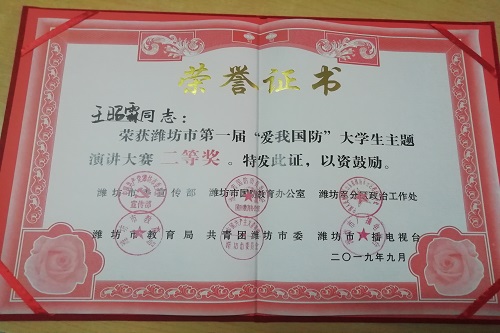 荣誉证书
王昭霖同志：
荣获潍坊市第一届“爱我国防”大学生主题
演讲大赛 二等奖 。特发此证，以资鼓励。
潍坊市委宣传部 潍坊市国防教育办公室 潍坊军分区政治工作处
潍坊市教育局 共青团潍坊市委 潍坊市广播电视台
二〇一九年九月